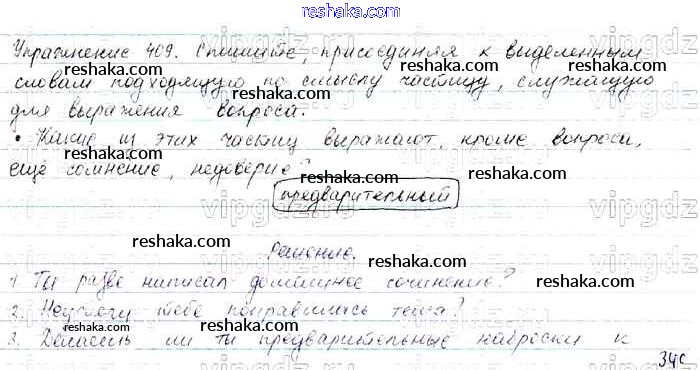 reshaka.com
Упражнение 409. Спишите, присоединяя к выделенным
reshaka.com reshaka.com
словам подходящую по смыслу частицу, служащую
для выражения вопроса.
reshaka.com reshaka.com
• Какие из этих частиц выражают, кроме вопроса,
ещё сомнение, недоверие?
reshaka.com
предварительный
reshaka.com
Решение.
reshaka.com
1. Ты разве написал домашнее сочинение?
reshaka.com reshaka.com
2. Неужели тебе понравилась тема?
3. Делаешь ли ты предварительные наброски к
reshaka.com reshaka.com
34с